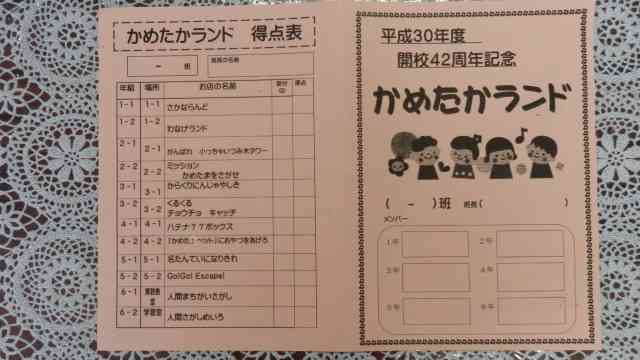 かめたかランド 得点表
- 班
班長の名前
年組 場所 お店の名前 得点
1-1 1-1 さかならんど
1-2 1-2 わなげランド
2-1 2-1 がんばれ 小っちゃいつみ木タワー
2-2 2-2 ミッション
かめたまをさがせ
3-1 3-1 からくりにんじゃやしき
3-2 3-2 くるくる
チョウチョ キャッチ
4-1 4-1 ハテナ??ボックス
4-2 4-2 「かめた」ペットにおやつをあげろ
5-1 5-1 名たんていになりきれ
5-2 5-2 Go!Go! Escape!
6-1 人間まちがいさがし
6-2 学習室 人間さがしめいろ
平成30年度
開校42周年記念
かめたかランド
( - )班 班長( )
メンバー
1年 2年
3年 4年
5年 6年